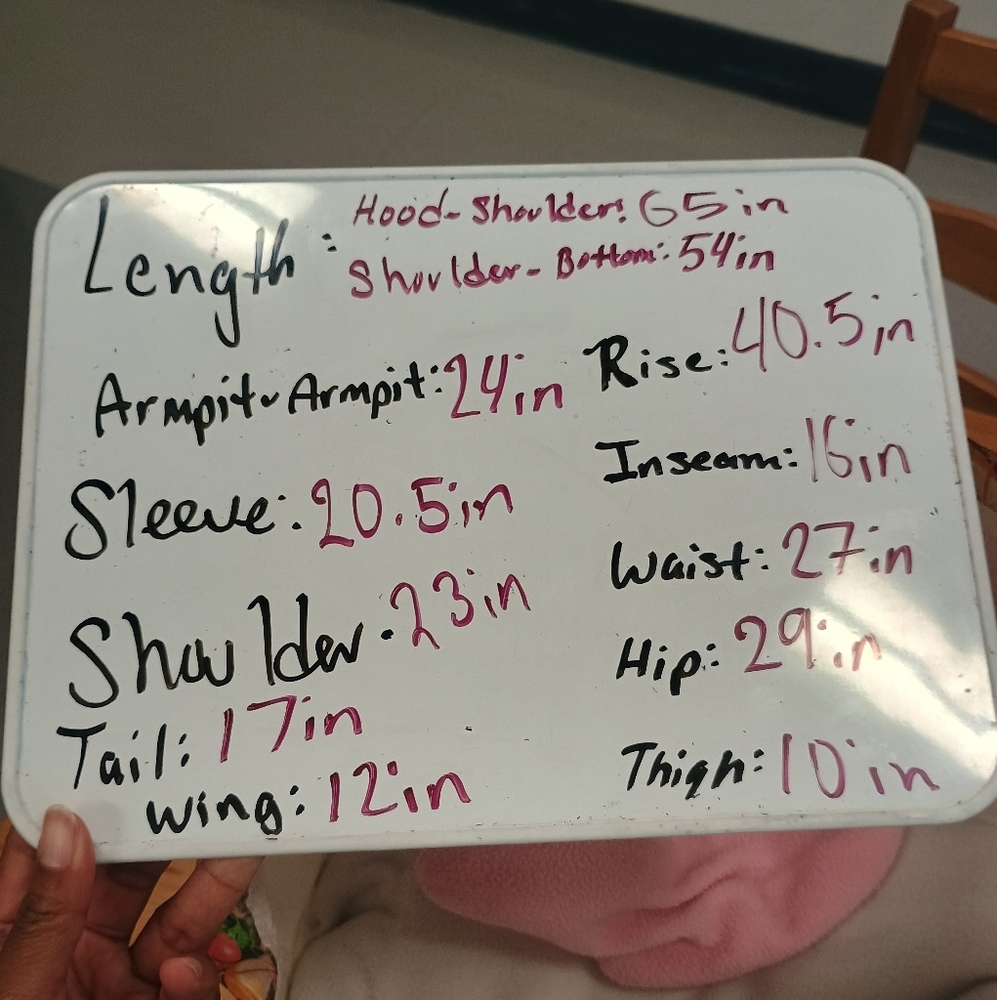 Length: Hood-Shoulder: 65in
Shoulder-Bottom: 54in
Armpit-Armpit: 24in
Sleeve: 20.5in
Shoulder: 23in
Tail: 17in
Wing: 12in
Rise: 40.5in
Inseam: 16in
Waist: 27in
Hip: 29in
Thigh: 10in